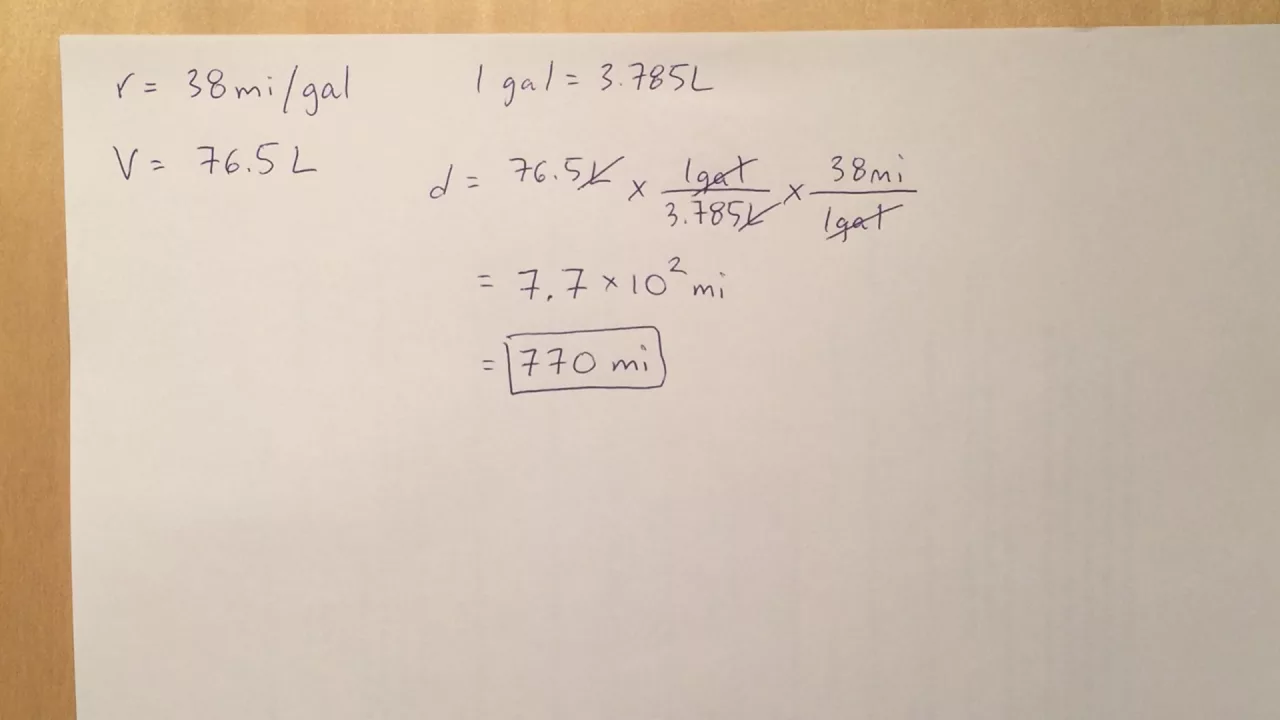 r = 38mi/gal
1 gal = 3.785L
V = 76.5 L
d = 76.5L × 1gal/3.785L × 38mi/1gal
= 7.7 × 10² mi
= 770 mi